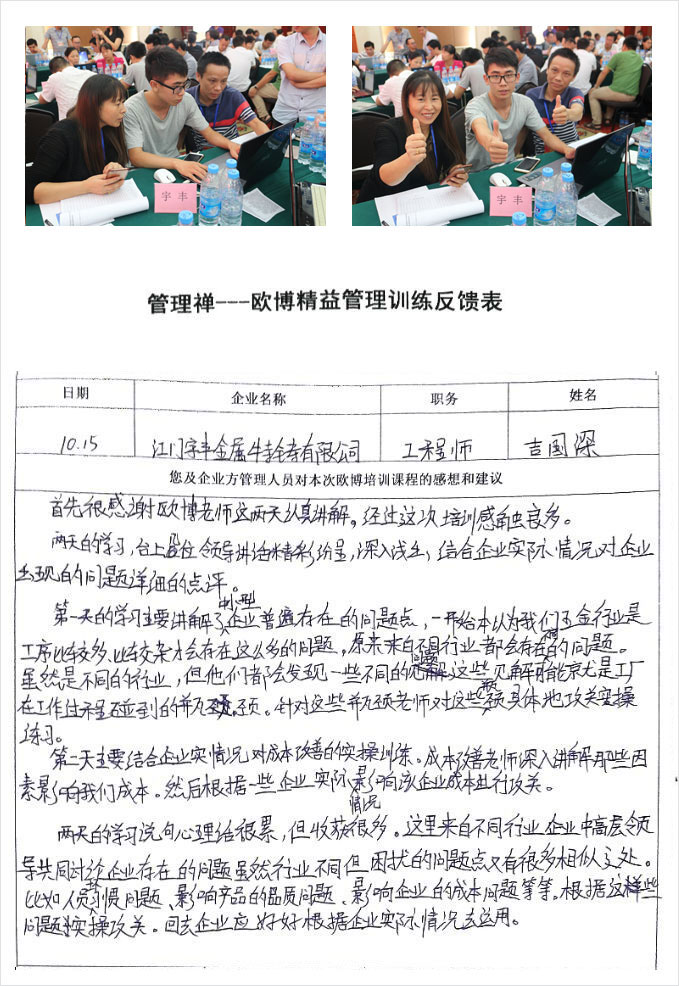 宇丰
宇丰
管理禅---欧博精益管理训练反馈表
日期 企业名称 职务 姓名
10.15 江门宇丰金属制有限公司 工程师 吉国深
您及企业方管理人员对本次欧博培训课程的感想和建议
首先很感谢欧博老师这两天认真讲解。经过这次培训感触良多。
两天的学习,台上各位领导讲话精彩纷呈,深入浅出,结合企业实际情况对企业
出现的问题详细的点评。
第一天的学习主要讲解了中小型企业普遍存在的问题点,一开始本以为我们五金行业是
工序比较多、比较杂才会存在这么多的问题,原来来自不同行业都会存在相的问题。
虽然是不同的行业,但他们都会发现一些不同的问题见解,这些见解可能就是工厂
在工作过程碰到的瓶颈。针对这些瓶颈老师对这些瓶颈具体地攻关实操
练习。
第二天主要结合企业实情况对成本改善的实操训练。成本改善老师深入讲解那些因
素影响我们成本。然后根据一些企业实际情况影响该企业成本进行攻关。
两天的学习说句心理话很累,但收获很多。这里来自不同行业企业中高层领
导共同讨论企业存在的问题虽然行业不同但困扰的问题点又有很多相似之处。
比如人员习惯问题、影响产品的品质问题、影响企业的成本问题等等。根据这样些
问题实操攻关。回去企业应好好根据企业实际情况去运用。